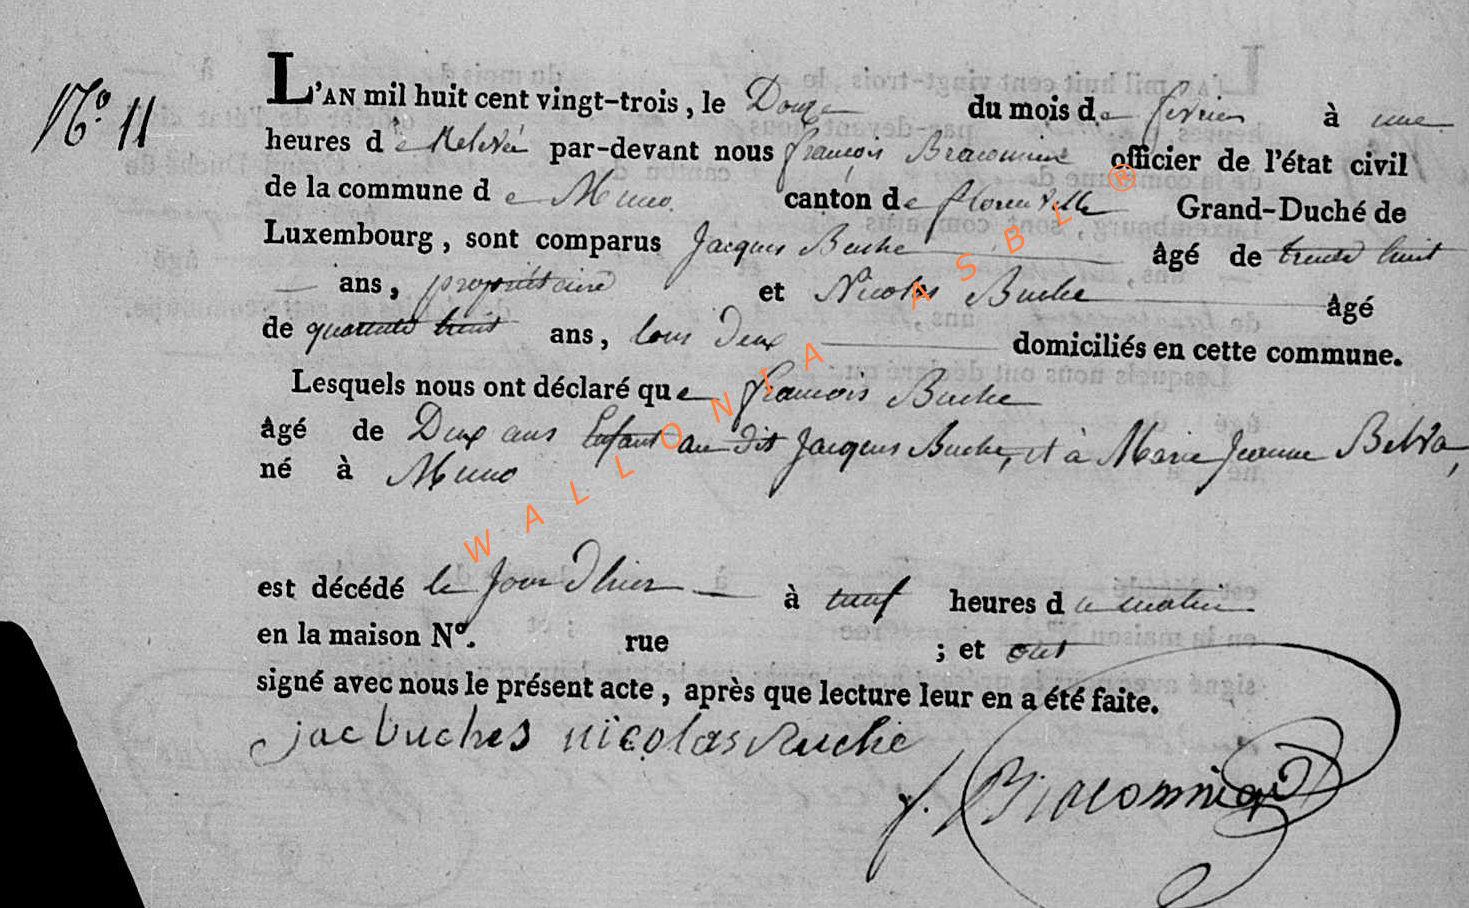 N.º 11
L'AN mil huit cent vingt-trois, le Douze du mois de fevrier à une
heures de Relevée par-devant nous françois Braconnier officier de l'état civil
de la commune de Muno canton de florenville Grand-Duché de
Luxembourg, sont comparus Jacques Buche âgé de trente huit
ans, propriétaire et Nicolas Buche âgé
de quarante huit ans, tous Deux domiciliés en cette commune.
Lesquels nous ont déclaré que françois Buche
âgé de Deux ans Enfant au dit Jacques Buche, et à Marie Jeanne
né à Muno
est décédé le Jour d'hier à neuf heures du matin
en la maison Nº. rue ; et ont
signé avec nous le présent acte, après que lecture leur en a été faite.
jac buches nicolas Buche
f. Braconnier
WALLONIA ASBL ®